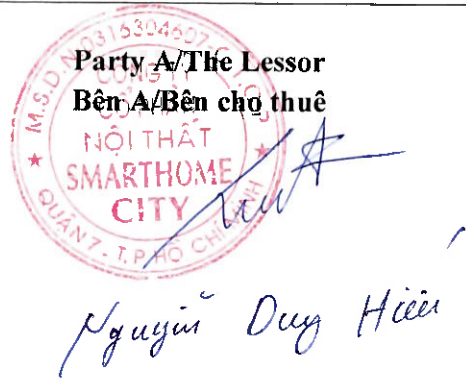 Party A/The Lessor
Bên A/Bên cho thuê
M.S.D.N: 0316304607 - C.T.C.P
CÔNG TY
CỔ PHẦN
NỘI THẤT
SMARTHOME
CITY
QUẬN 7 - T.P HỒ CHÍ MINH
Nguyễn Duy Hiếu